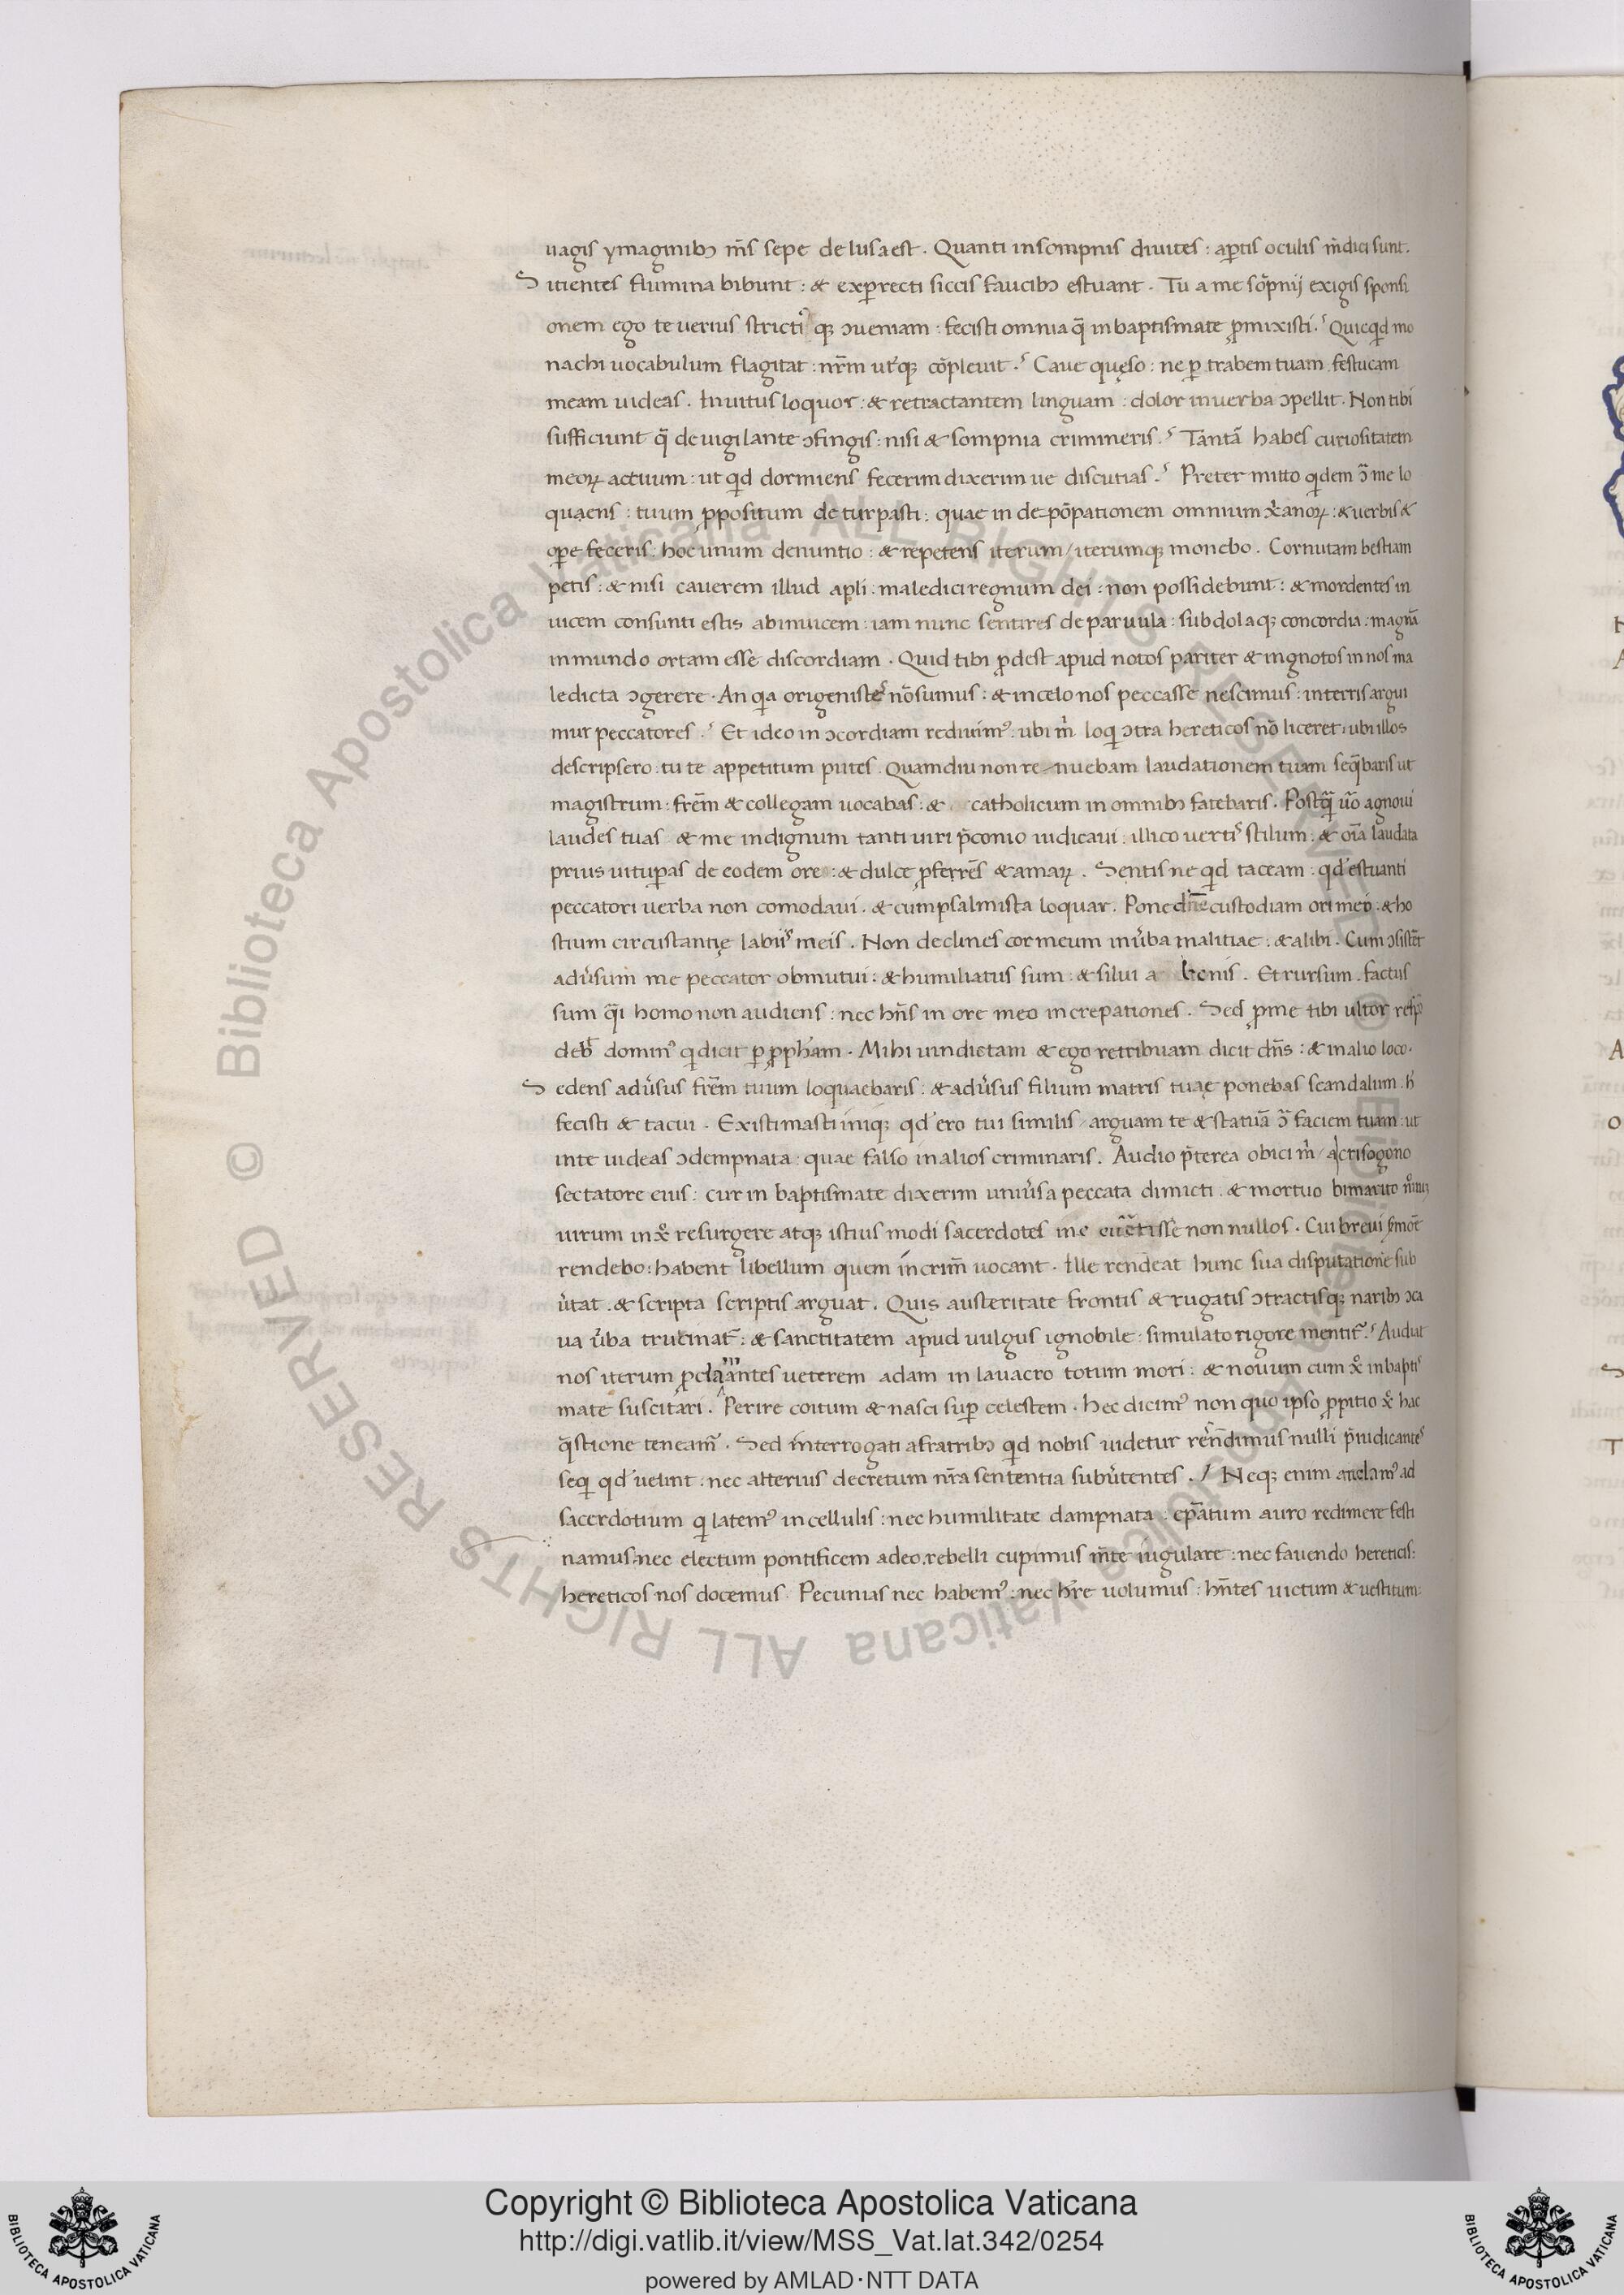 uagis ymaginibꝫ m̄s sepe de lusa est . Quanti insompnis diuites : ap̱tis oculis m̄dici sunt .
Sitientes flumina bibunt : & exp̱recti siccis faucibꝫ estuant . Tu a me sōpnij exigis sponsi
onem ego te uerius strictiꝰ qꝫ ɔueniam : fecisti omnia q̄ inbaptismate ꝓmixisti . Quicqͥd mo
nachi uocabulum flagitat : nr̄m ut͛qꝫ cōpleuit . Caue quęso : ne p̱ trabem tuam festucam
meam uideas . Inuitus loquor : & retractantem linguam : dolor inuerba ɔpellit . Non tibi
sufficiunt q̄ de uigilante ɔfingis : nisi & sompnia crimineris . Tantā habes curiositatem
meoꝝ actuum : ut qͥd dormiens fecerim dixerim ue discutias . Preter mitto qͥdem ɔ̄ me lo
quaens : tuum ꝓpositum de turpasti : quae in de=pōpationem omnium xp̄anoꝝ : & uerbis &
op̱e feceris : hoc unum denuntio : & repetens iterum / iterumqꝫ monebo . Cornutam bestiam
petis : & nisi cauerem illud apl̄i : maledici regnum dei : non possidebunt : & mordentes in
uicem consunti estis abinuicem : iam nunc sentires de paruula : subdola qꝫ concordia : magnā
inmundo ortam esse discordiam . Quid tibi ꝓdest apud notos pariter & ingnotos in nos ma
ledicta ɔgerere . An qͥa origeniste nōsumus : & incelo nos peccasse nescimus : interris argui
mur peccatores . Et ideo in ɔcordiam rediuimꝰ : ubi m̄ loqͥ ɔtra hereticos nō liceret : ubi illos
descripsero : tu te appetitum putes . Quamdiu non re-nuebam laudationem tuam seq̄baris ut
magistrum : frēm & collegam uocabas : & catholicum in omnibꝫ fatebaris . Postq̄ u͛o agnoui
laudes tuas & me indignum tanti uiri p̄conio iudicaui : illico uertis stilum : & oīa laudata
prius uitup̱as de eodem ore : & dulce ꝓferrēs & amaꝝ . Sentis ne qͥd taceam : qd' estuanti
peccatori uerba non comodaui . & cumpsalmista loquar . Pone dn̄e custodiam ori meo : & ho
stium circustantię labiis meis . Non declines cor meum inu͛ba malitiae : & alibi . Cum ɔsistēt
adu͛sum me peccator obmutui : & humiliatus sum : & silui a bonis . Et rursum . factus
sum q̄i homo non audiens : nec hn̄s in ore meo increpationes . Sed ꝓme tibi ultor
deb̄ dominꝰ qͥ dicit p̱ ꝓph̄am . Mihi uindictam & ego retribuam dicit dn̄s : & in alio loco .
Sedens adu͛sus frēm tuum loquaebaris : & adu͛sus filium matris tuaę ponebas scandalum . h̄
fecisti & tacui . Existimasti iniqꝫ qd' ero tui similis / arguam te & statuā ɔ̄ faciem tuam : ut
inte uideas ɔdempnata : quae falso in alios criminaris . Audio p̄terea obici m̄ / a crisogono
sectatore eius : cur in baptismate dixerim uniu͛sa peccata dimicti . & mortuo bimarito
uirum inxͦ resurgere atqꝫ istius modi sacerdotes me non nullos . Cui breui
rendebo : habent libellum quem in crim̄ uocant . Ille rendeat hunc sua disputationē sub
u͛tat . & scripta scriptis arguat . Quis austeritate frontis & rugatis ɔtractisqꝫ naribꝫ ɔca
ua u͛ba trutinat᷑ : & sanctitatem apud uulgus ignobile : simulato rigore mentit᷑ . Audiat
nos iterum ꝓclamantes ueterem adam in lauacro totum mori : & nouum cum xͦ inbaptis
mate suscitari . Perire coitum & nasci sup̱ celestem . hec dicimꝰ non quo ipso ꝓpitio xͦ hac
q̄stione teneam᷑ . Sed interrogati afratribꝫ qͥd nobis uidetur ren̄dimus nulli p̄iudicantes
seqͥ qd' uelint : nec alterius decretum nr̄a sententia subu͛tentes . / Neqꝫ enim anelamꝰ ad
sacerdotium qͥ latemꝰ in cellulis : nec humilitate dampnata : ep̄atum auro redimere festi
namus : nec electum pontificem adeo . rebelli cupimus m̄te iugulare : nec fauendo hereticis :
hereticos nos docemus . Pecunias nec habemꝰ : nec h͛re uolumus : hn̄tes uictum & uestitum :
Copyright © Biblioteca Apostolica Vaticana
http://digi.vatlib.it/view/MSS_Vat.lat.342/0254
powered by AMLAD·NTT DATA
BIBLIOTECA APOSTOLICA VATICANA
BIBLIOTECA APOSTOLICA VATICANA
© Biblioteca Apostolica Vaticana ALL RIGHTS RESERVED © Biblioteca Apostolica Vaticana ALL RIGHTS RESERVED